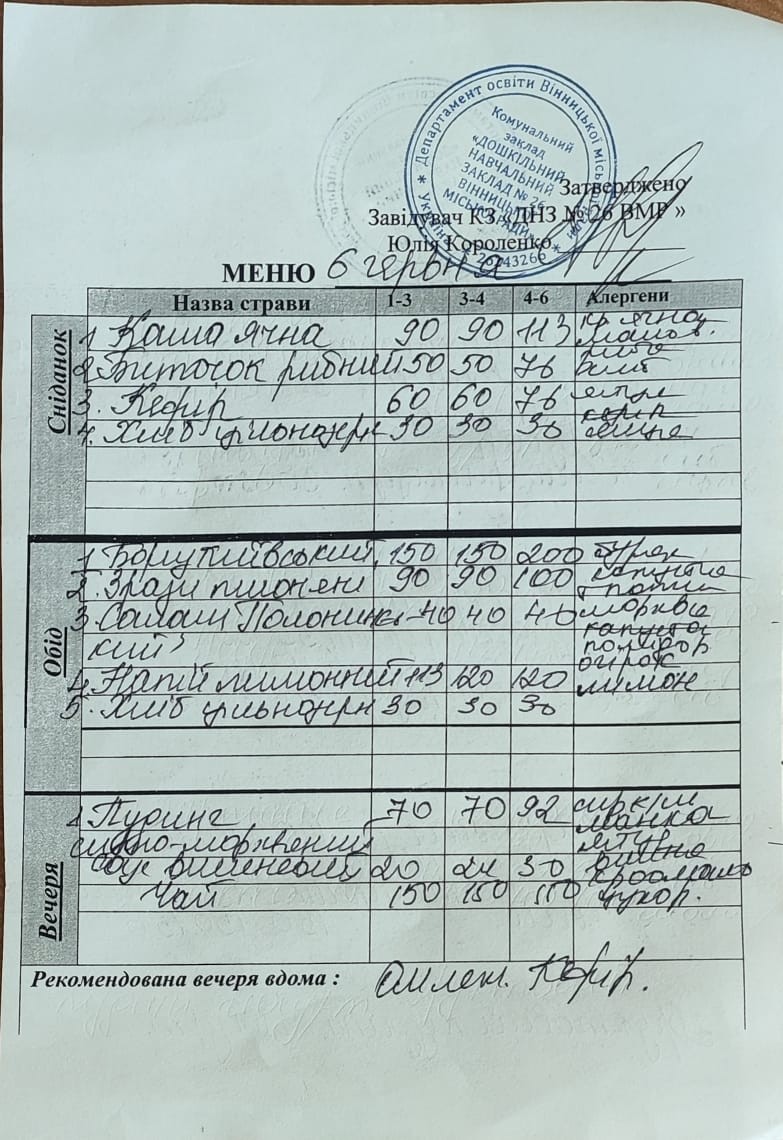 * Департамент освіти Вінницької міської ради *
Комунальний
заклад
«ДОШКІЛЬНИЙ
НАВЧАЛЬНИЙ
ЗАКЛАД № 26
ВІННИЦЬКОЇ
МІСЬКОЇ РАДИ»
26243266
Затверджено
Завідувач КЗ «ДНЗ № 26 ВМР »
Юлія Короленко
МЕНЮ 6 червня
Назва страви 1-3 3-4 4-6 Алергени
Сніданок
1 Каша ячна 90 90 113 кр ячна
маслов.
2. Биточок рибний 50 50 76 риба
3. Кефір 60 60 76 яйце
кефір
4. Хліб цільнозерн 30 30 30
Обід
1 Борщ київський 150 150 200 буряк
капуста
2. Зрази пшоняні 90 90 100
3 Салат Полонинсь- 40 40 40 морква
кий капуста
помідор
огірок
4. Напій лимонний 113 120 120 лимон
5. Хліб цільнозерн 30 30 30
Вечеря
1. Пудинг 70 70 92 сир кисл
манка
сирно-морквяний
Соус вишневий 20 24 30 вишня
крохмаль
Чай 150 150 150 цукор.
Рекомендована вечеря вдома : Омлет. Кефір.